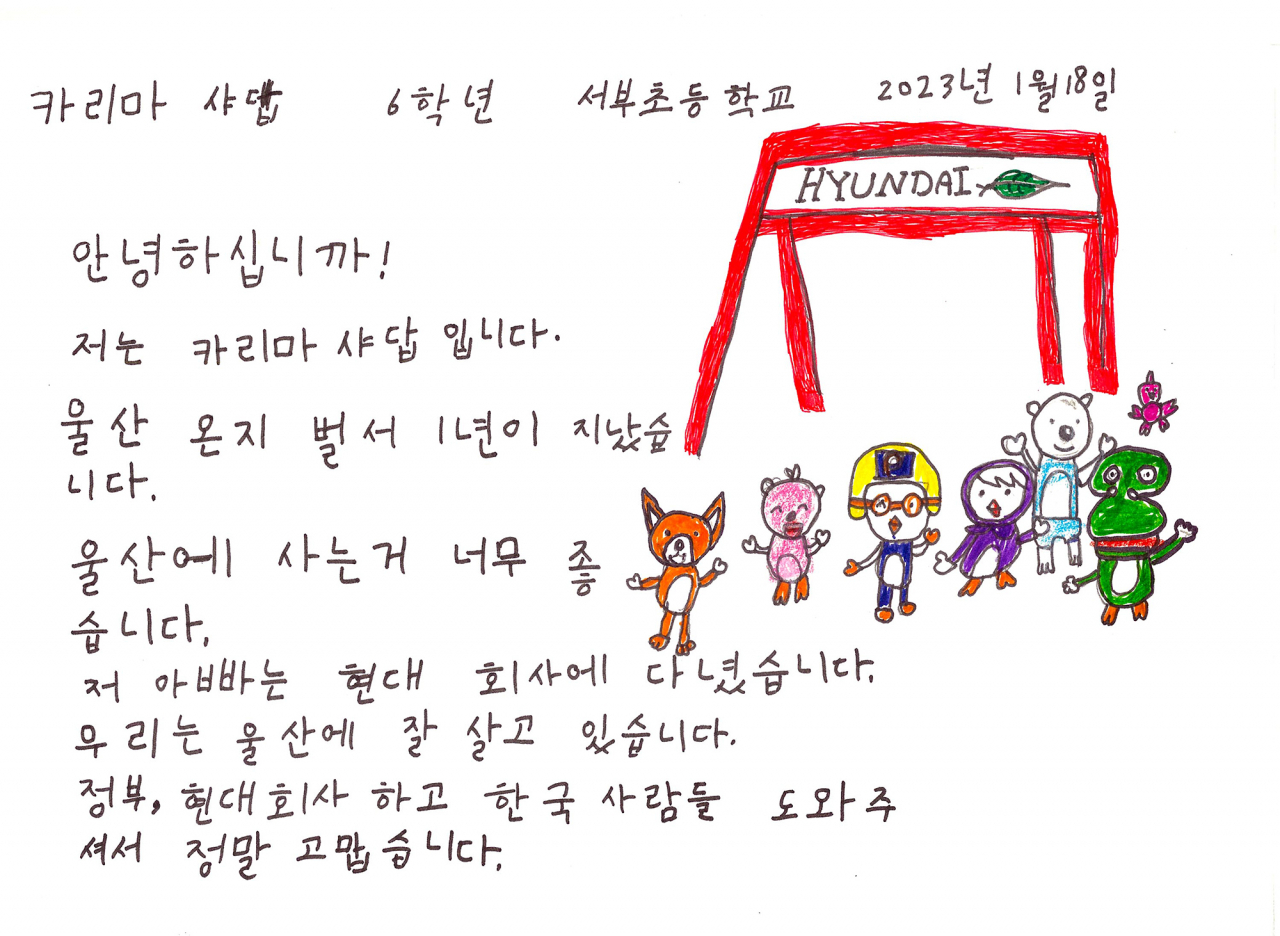 카리마 샤댑 6학년 서부초등학교 2023년 1월18일
HYUNDAI
안녕하십니까!
저는 카리마 샤답 입니다.
울산 온지 벌서 1년이 지났습
니다.
P
울산에 사는거 너무 좋
습니다.
저 아빠는 현대 회사에 다녔습니다.
우리는 울산에 잘 살고 있습니다.
정부, 현대회사 하고 한국 사람들 도와주
셔서 정말 고맙습니다.